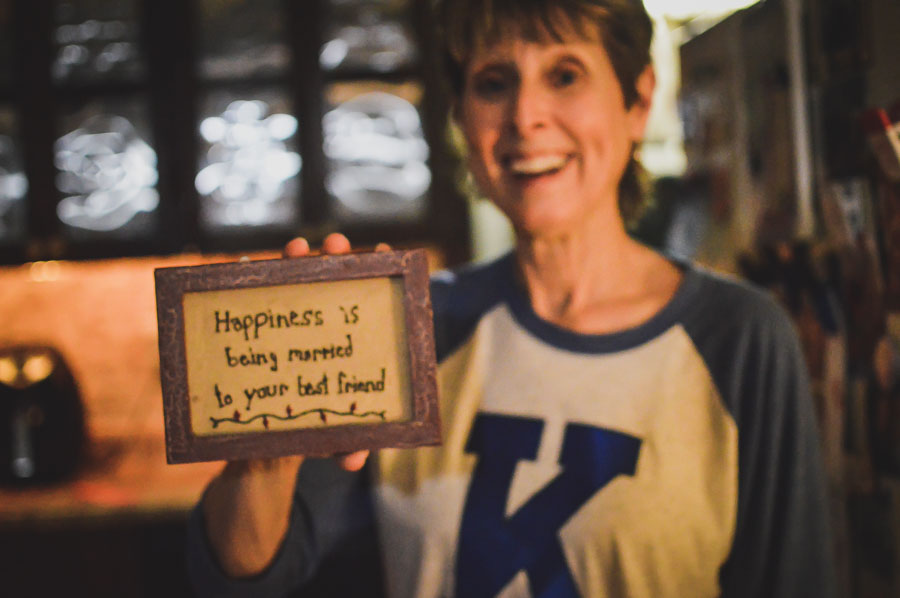 Happiness is
being married
to your best friend
K